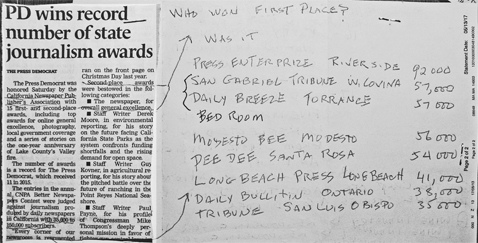 PD wins record
number of state
journalism awards
THE PRESS DEMOCRAT
The Press Democrat was
honored Saturday by the
California Newspaper Pub-
lisher's Association with
15 first- and second-place
awards, including top
awards for online general
excellence, photography,
local government coverage
and a series of stories on
the one-year anniversary
of Lake County's Valley
fire.
The number of awards
is a record for The Press
Democrat, which received
11 in 2012.
The entries in the annu-
al, CNPA Better Newspa-
pers Contest were judged
against journalism pro-
duced by daily newspapers
in California with
subscribers.
Every corner of our
newsroom is represented
ran on the front page on
Christmas Day last year.
Second-place awards
were bestowed in the fol-
lowing categories:
■ The newspaper, for
overall general excellence.
■ Staff Writer Derek
Moore, in environmental
reporting, for his story
on the future facing Cali-
fornia State Parks as the
system confronts funding
shortfalls and the rising
demand for open space.
■ Staff Writer Guy
Kovner, in agricultural re-
porting, for his story about
the pitched battle over the
future of ranching in the
Point Reyes National Sea-
shore.
■ Staff Writer Paul
Payne, for his profile
of Congressman Mike
Thompson's deeply per-
sonal mission in favor of
WHO WON FIRST PLACE?
WAS IT
PRESS ENTERPRIZE RIVERSIDE 92000
SAN GABRIEL TRIBUNE W. COVINA 57,000
DAILY BREEZE TORRANCE 57000
BED ROOM
MODESTO BEE MODESTO 56000
PEE DEE SANTA ROSA 54000
LONG BEACH PRESS LONG BEACH 41,000
DAILY BULLITIN ONTARIO 38,000
TRIBUNE SAN LUIS OBISPO 35000
Statement Date: 05/13/17
Page 2 of 2